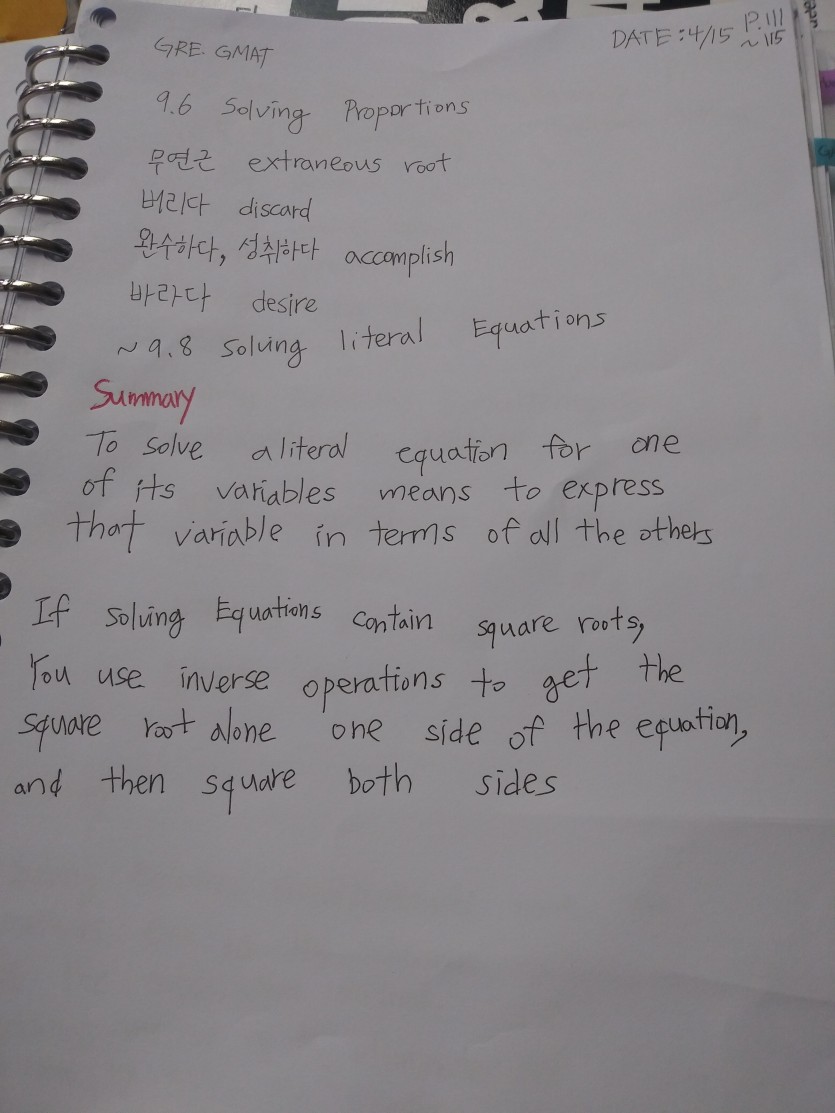 GRE. GMAT
DATE : 4/15 P.111 ~ 115
9.6 Solving Proportions
무연근 extraneous root
버리다 discard
완수하다, 성취하다 accomplish
바라다 desire
~ 9.8 solving literal Equations
Summary
To solve a literal equation for one
of its variables means to express
that variable in terms of all the others
If solving Equations contain square roots,
You use inverse operations to get the
square root alone one side of the equation,
and then square both sides